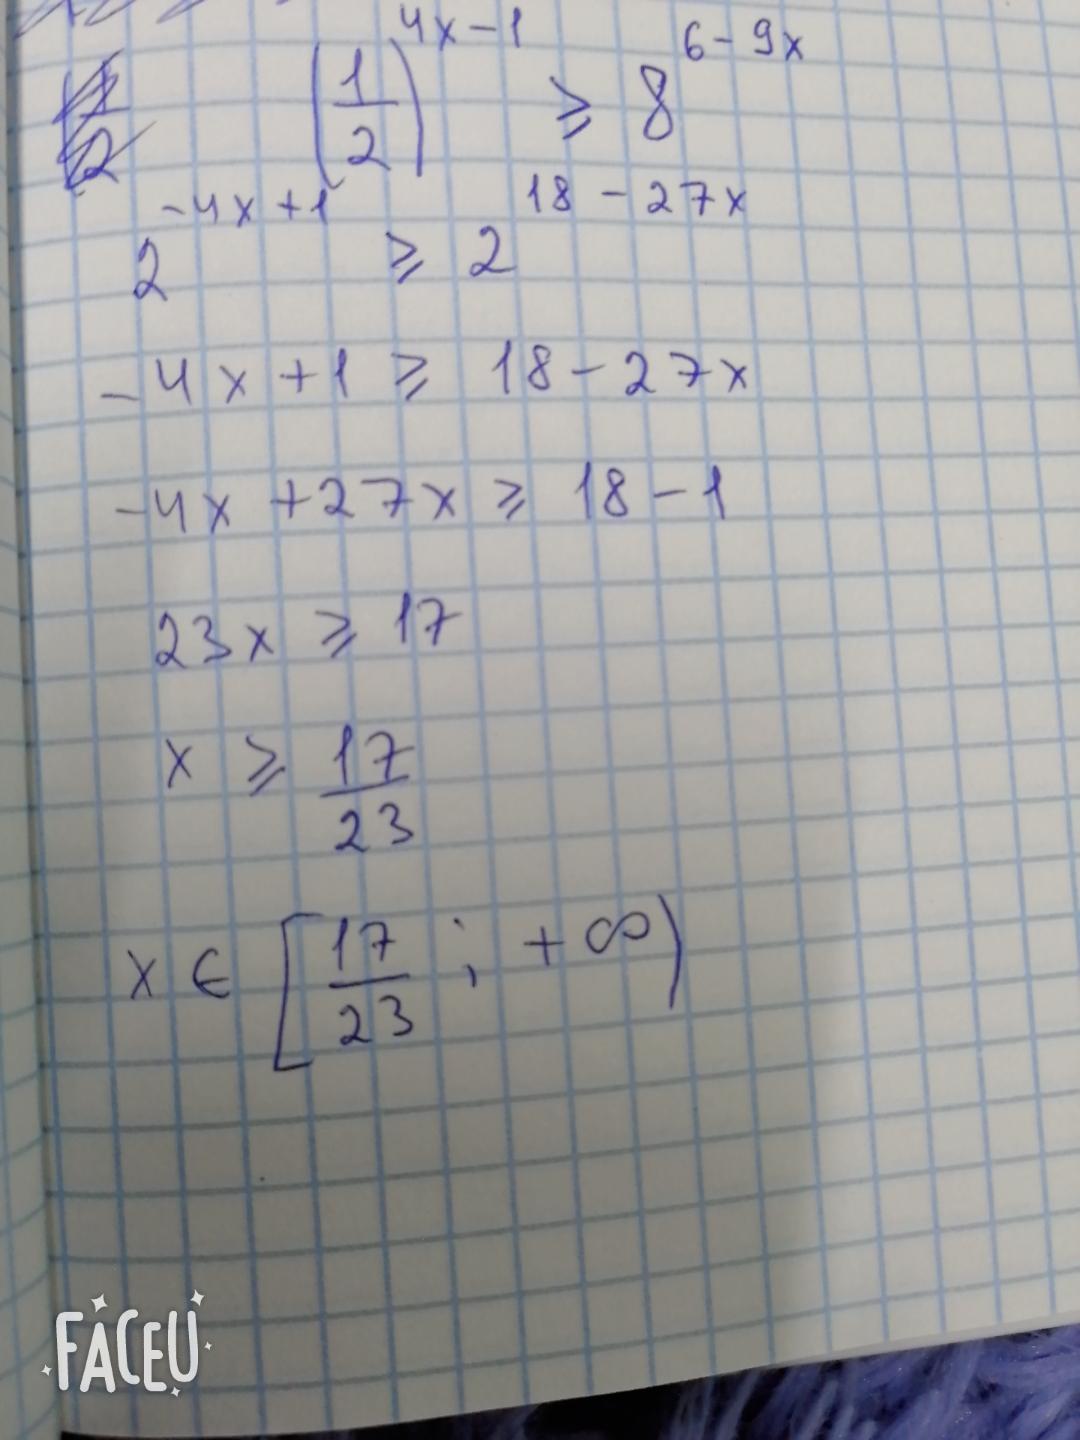 (1/2)^(4x-1) ≥ 8^(6-9x)
2^(-4x+1) ≥ 2^(18-27x)
-4x+1 ≥ 18-27x
-4x+27x ≥ 18-1
23x ≥ 17
x ≥ 17/23
x ∈ [17/23 ; +∞)
FACEU